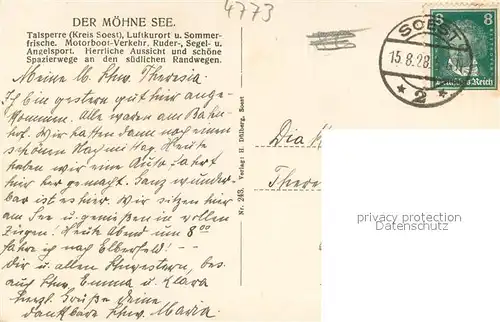 4773
DER MÖHNE SEE.
Talsperre (Kreis Soest), Luftkurort u. Sommer-
frische. Motorboot-Verkehr, Ruder-, Segel- u.
Angelsport. Herrliche Aussicht und schöne
Spazierwege an den südlichen Randwegen.
Meine lb. Schw. Theresia!
Ich bin gestern gut hier ange-
kommen. Alle waren am Bahn-
hof. Wir hatten dann noch einen
schönen Nachmittag. Heute
haben wir eine Auto fahrt
hier her gemacht. Ganz wunder-
bar ist es hier. Wir sitzen hier
am See u genießen in vollen
Zügen. Heute Abend um 8 00
fahre ich nach Elberfeld! --
Dir u. allen Schwestern, bes.
auch Schw. Emma u. Klara
herzl. Grüße deine
dankbare Schw. Maria.
Nr. 243. Verlag: H. Dülberg, Soest
SOEST
15.8.28.
* 2 *
8 8
Deutsches Reich
Diak
There
privacy protection
Datenschutz